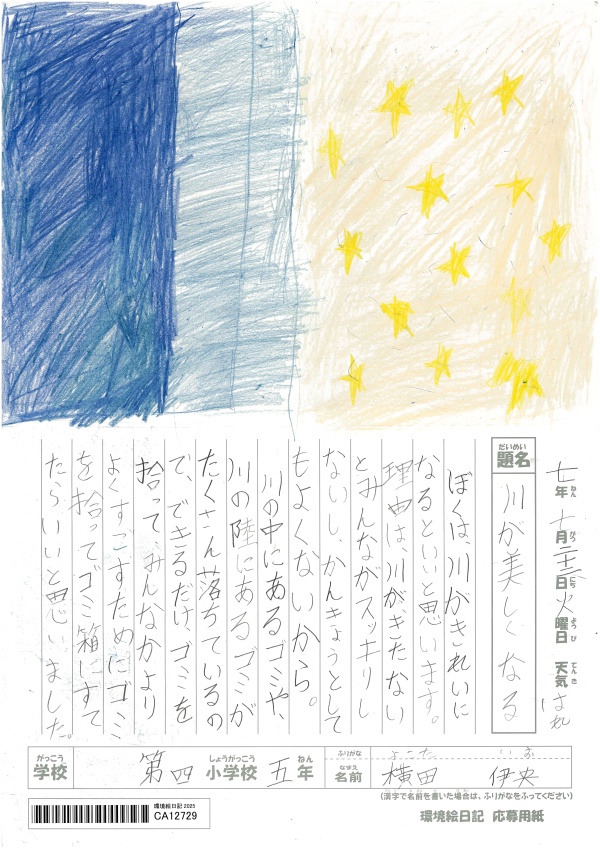 七年 七月二十二日 火曜日 天気 はれ
ねん がつ にち ようび てんき
だいめい
題名 川が美しくなる
ぼくは、川がきれいに
なるといいと思います。
理由は、川がきたない
とみんながスッキリし
ないし、かんきょうとして
もよくないから。
川の中にあるゴミや、
川の陸にあるゴミが
たくさん落ちているの
で、できるだけ、ゴミを
拾って、みんなかより
よくすごすためにゴミ
を拾ってゴミ箱にすて
たらいいと思いました。
がっこう しょうがっこう ねん
学校 第四小学校 五年
ふりがな よこた いお
なまえ
名前 横田 伊央
(漢字で名前を書いた場合は、ふりがなをふってください)
環境絵日記 2025
CA12729
環境絵日記 応募用紙